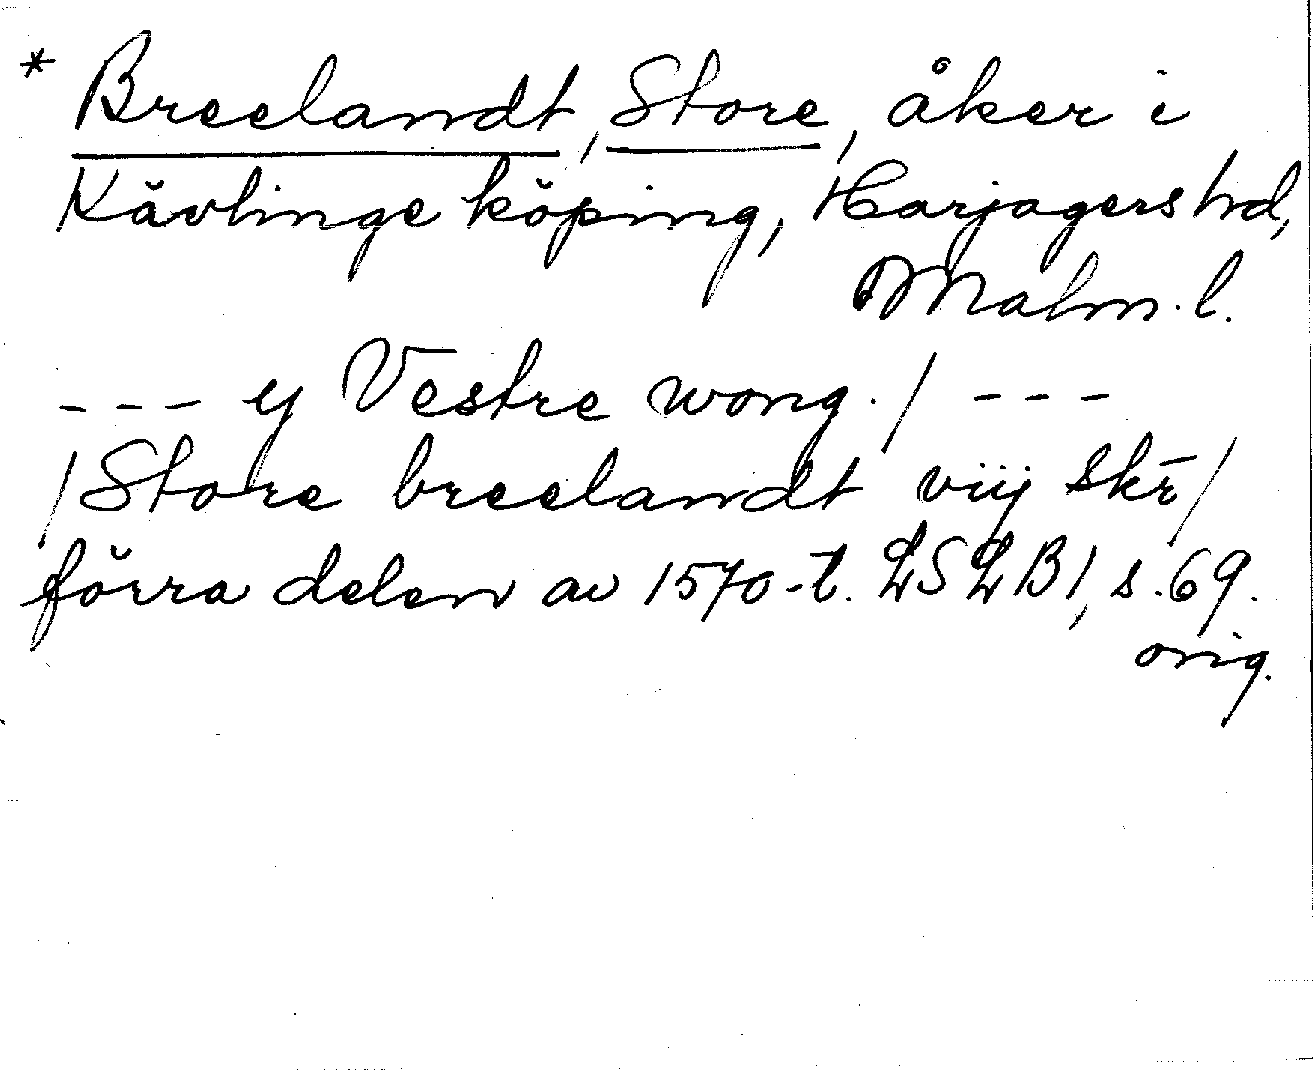 * Breelandt, Store, åker i
Kävlinge köping, Harjagers hd,
Malm. l.
--- y Vestre wong. / ---
/ Store breelandt viij skr̄ /
förra delen av 1570-t. LSLB 1, s. 69.
orig.